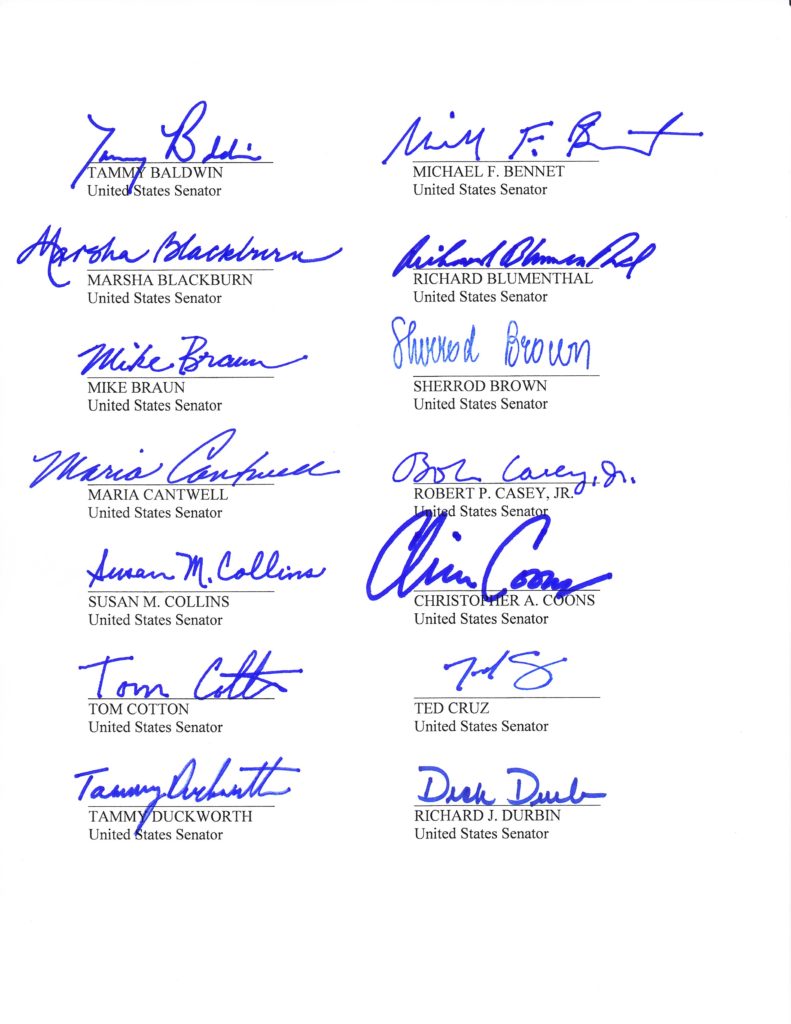 Tammy Baldwin
TAMMY BALDWIN
United States Senator
Michael F. Bennet
MICHAEL F. BENNET
United States Senator
Marsha Blackburn
MARSHA BLACKBURN
United States Senator
Richard Blumenthal
RICHARD BLUMENTHAL
United States Senator
Mike Braun
MIKE BRAUN
United States Senator
Sherrod Brown
SHERROD BROWN
United States Senator
Maria Cantwell
MARIA CANTWELL
United States Senator
Bob Casey, Jr.
ROBERT P. CASEY, JR.
United States Senator
Susan M. Collins
SUSAN M. COLLINS
United States Senator
Chris Coons
CHRISTOPHER A. COONS
United States Senator
Tom Cotton
TOM COTTON
United States Senator
Ted Cruz
TED CRUZ
United States Senator
Tammy Duckworth
TAMMY DUCKWORTH
United States Senator
Dick Durbin
RICHARD J. DURBIN
United States Senator